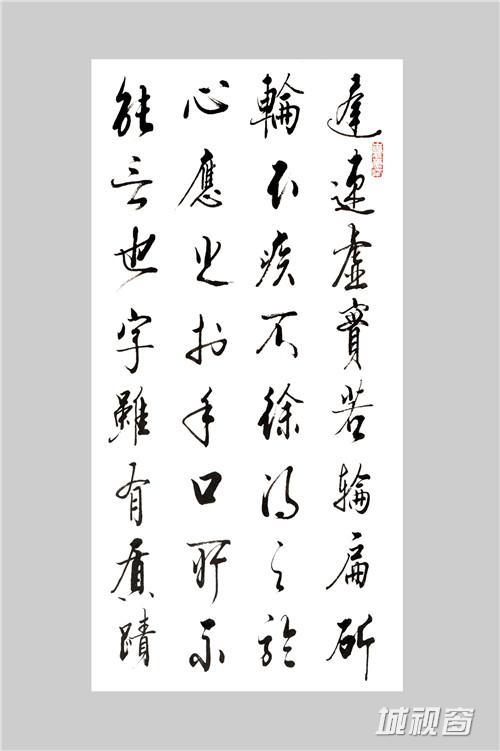 遲速虛實若輪扁斫
輪不疾不徐得之於
心應之於手口所不
能言也字雖有質蹟
城视窗